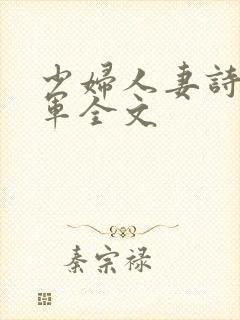 少婦人妻詩
軍全文
秦宗禄